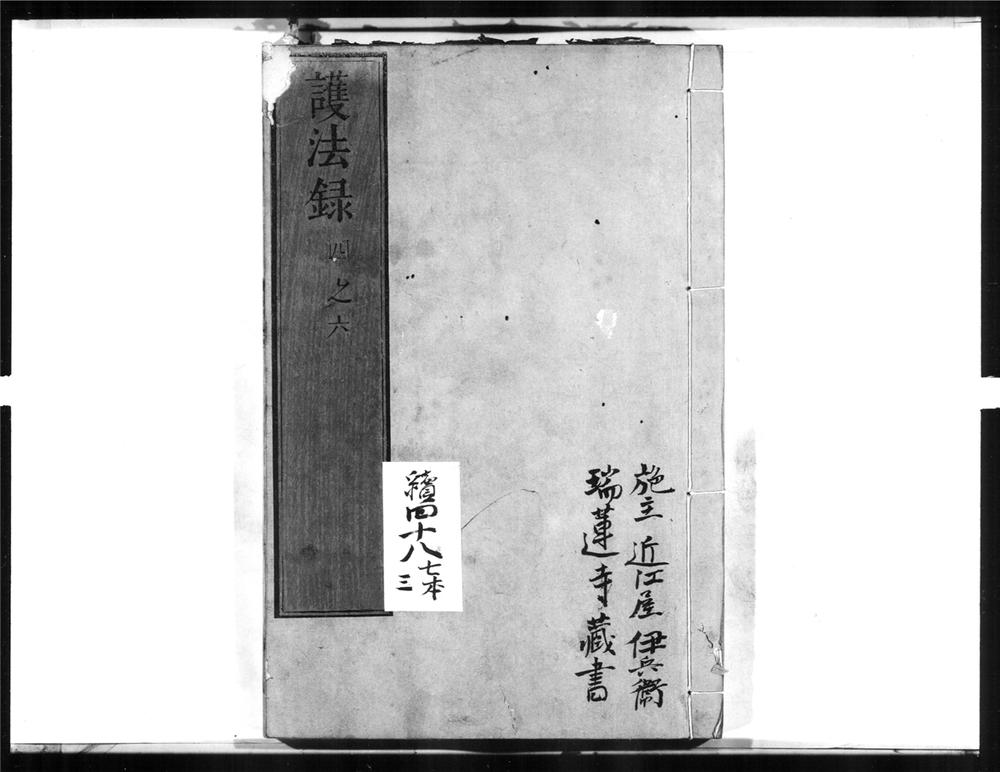 施主 近江屋 伊兵衞
瑞蓮寺藏書
續四十八
七本
三
護法録 四之六